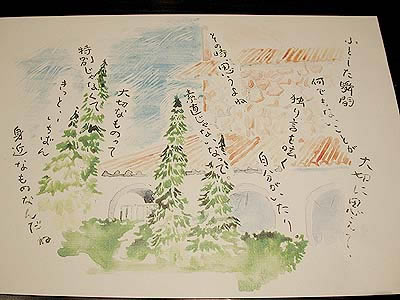 ふとした瞬間
何でもないことが
大切に思えて…
独り言も言
自分がいたり。
その時、思うよね
素直じゃないなって
大切なものって
特別じゃなくて
きっと…いちばん
身近なものなんだね